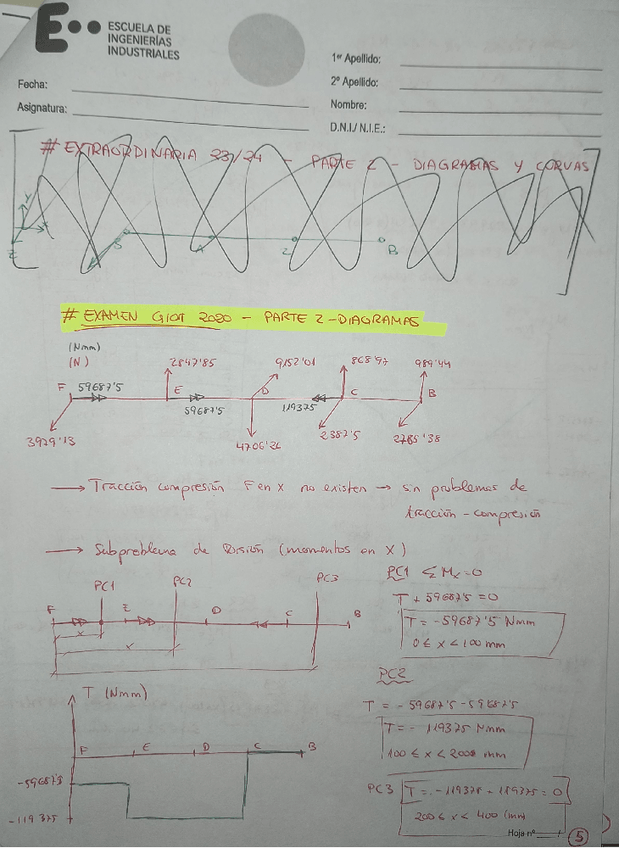 ESCUELA DE
INGENIERÍAS
INDUSTRIALES
1er Apellido:
2º Apellido:
Nombre:
D.N.I./ N.I.E.:
Fecha:
Asignatura:
# EXTRAORDINARIA 23/24 - PARTE 2 - DIAGRAMAS Y CORVAS
Y
Z
S A 2 B
# EXAMEN GIOI 2020 - PARTE 2 - DIAGRAMAS
(Nmm)
(N)
2847'85 9152'01 868'97 989'44
F 59687'5 E D C B
59687'5 119375
3979'13 4706'26 2387'5 2785'38
→ Tracción compresión F en X no existen → sin problemas de
tracción - compresión
→ Subproblema de Torsión (momentos en X)
PC1 PC2 PC3
F E D C B
x
x
PC1 ΣMx=0
T + 59687'5 = 0
T = -59687'5 Nmm
0 ≤ x < 100 mm
PC2
T = -59687'5 -59687'5
T = - 119375 Nmm
100 ≤ x < 200 mm
PC3 T = -119375 + 119375 = 0
200 ≤ x < 400 (mm)
T (Nmm)
F E D C B
-59687'5
-119375
Hoja nº 5